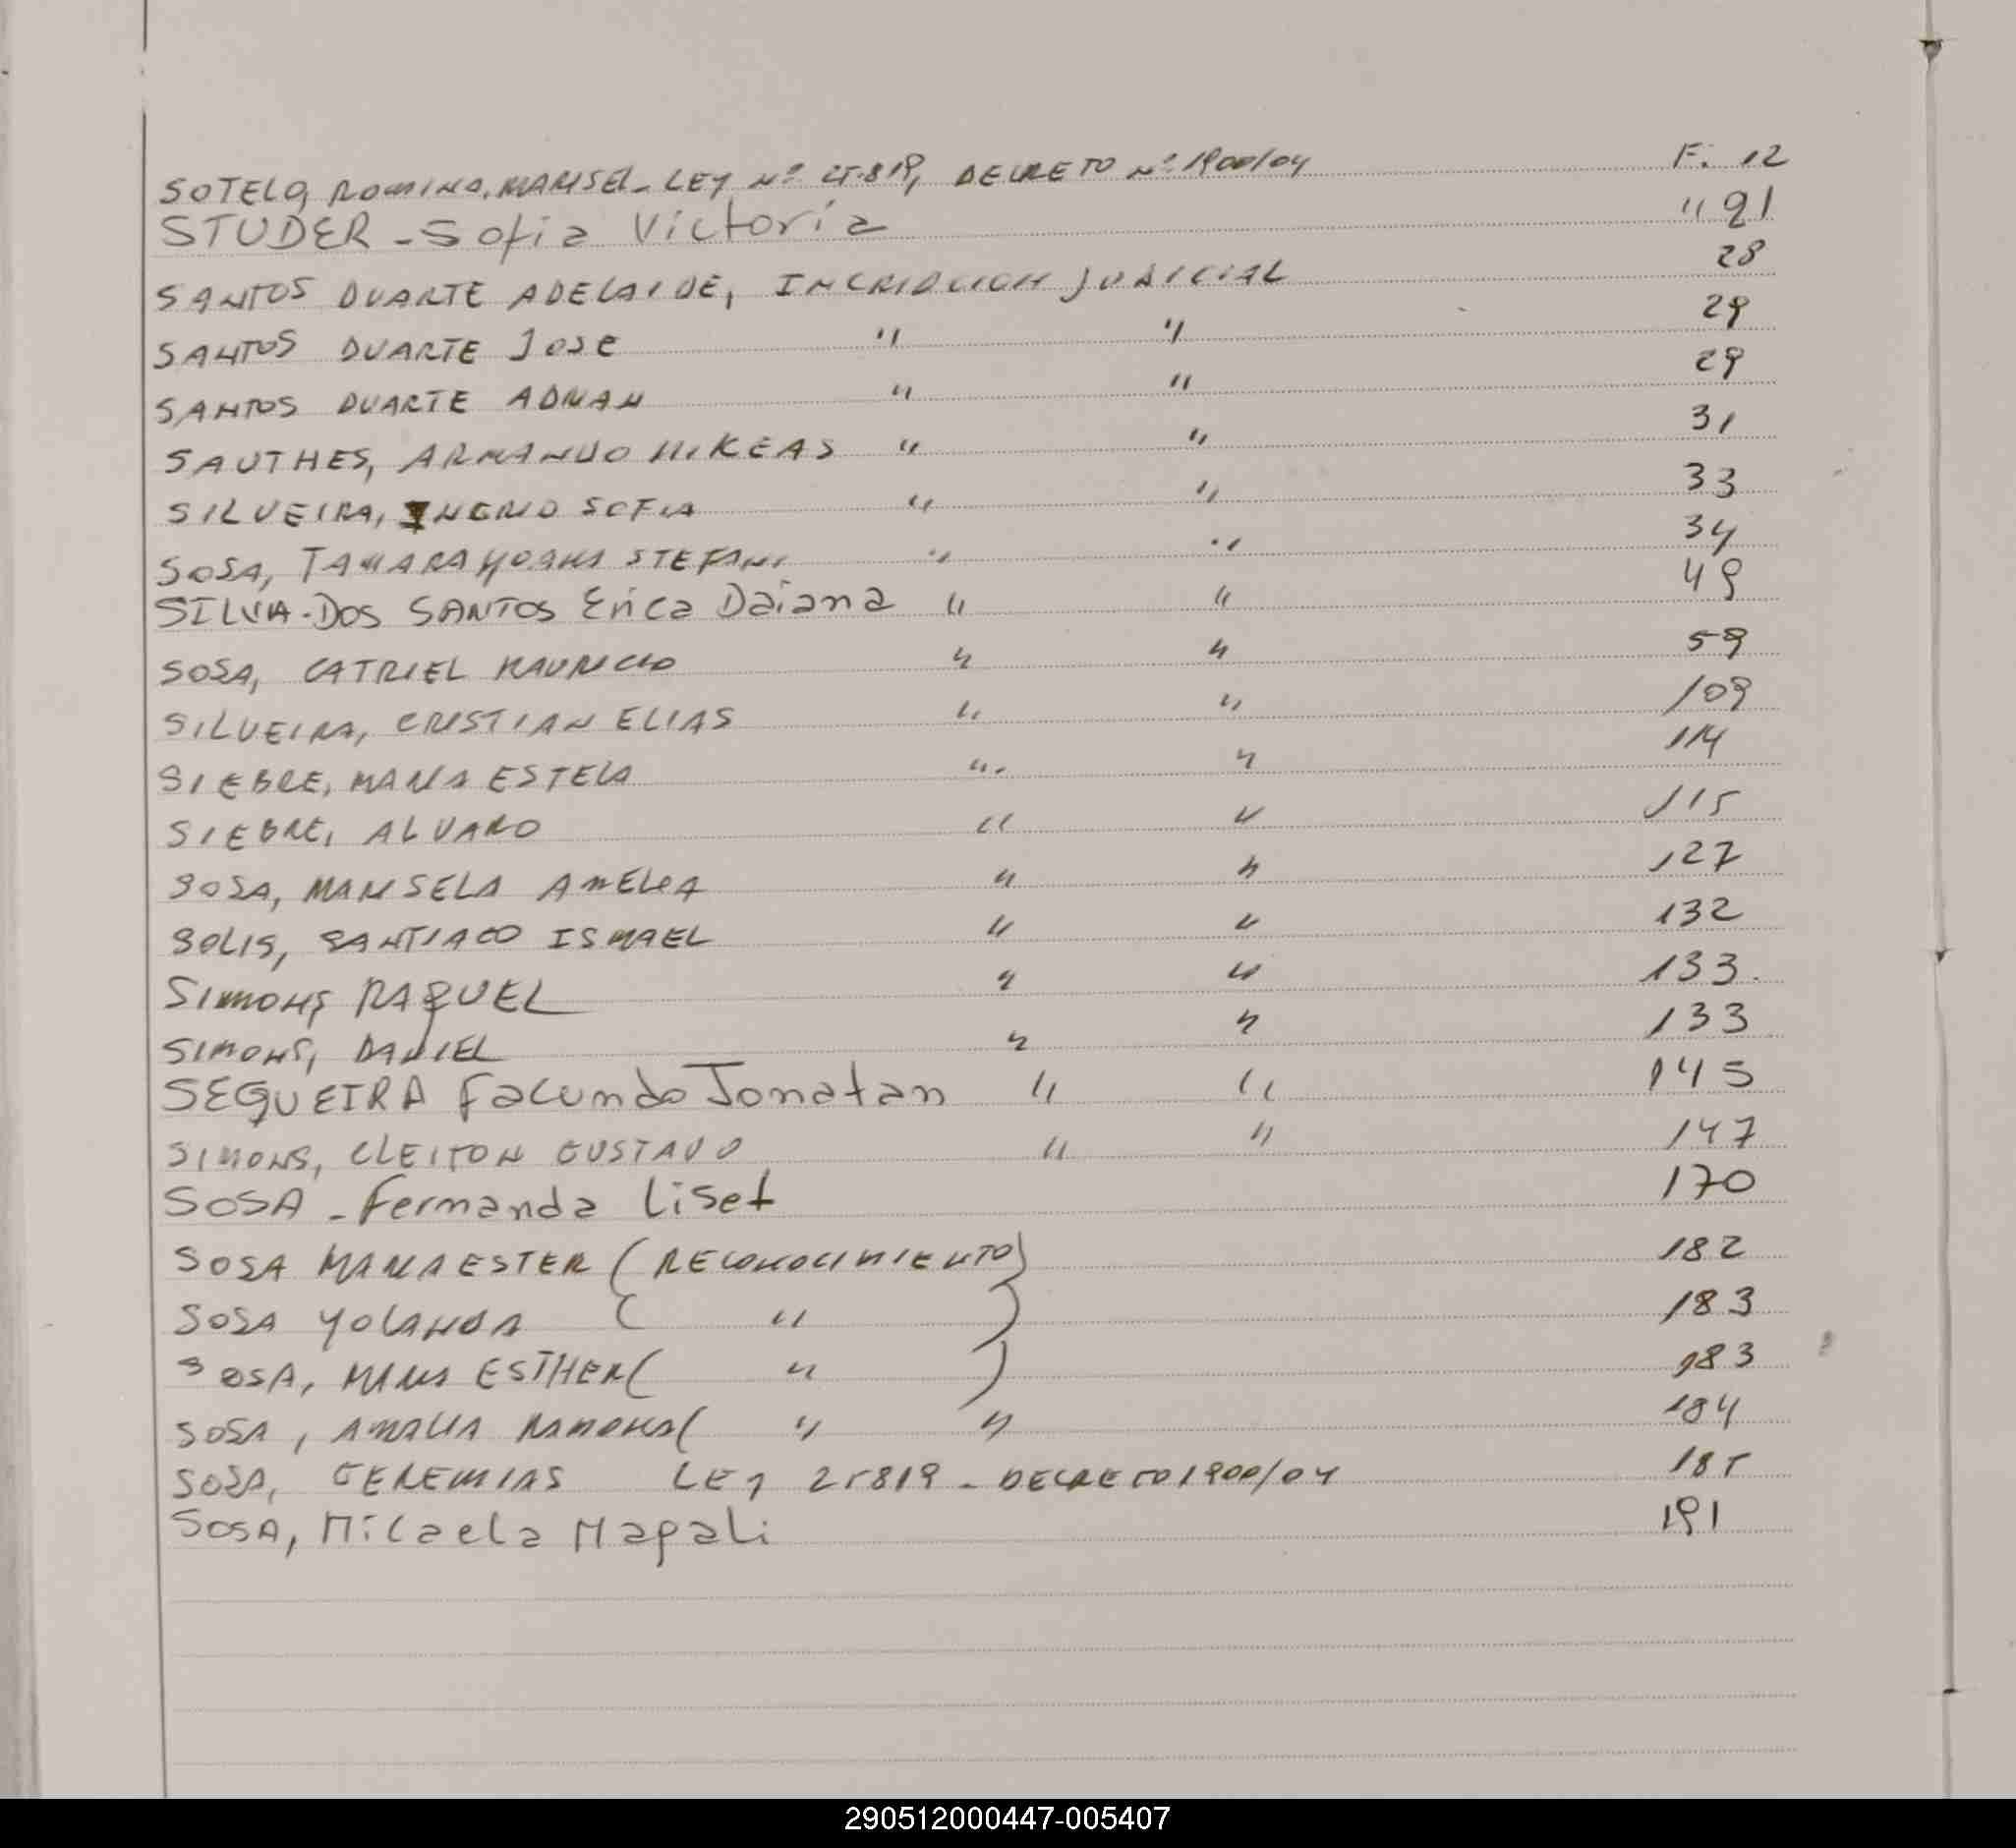 SOTELO, ROMINA, MARISEL - LEY Nº 25.819, DECRETO Nº 1900/04 F. 12
STUDER - Sofia Victoria " 21
SANTOS DUARTE ADELAIDE, INCRIPCION JUDICIAL 28
SANTOS DUARTE JOSE " " 29
SANTOS DUARTE ADRIAN " " 29
SAUTHES, ARMANDO MIKEAS " " 31
SILVEIRA, INGRID SOFIA " " 33
SOSA, TAMARA YOANA STEFANI " " 34
SILVA - DOS SANTOS Erica Daiana " " 49
SOSA, CATRIEL MAURICIO " " 59
SILVEIRA, CRISTIAN ELIAS " " 109
SIEBRE, MARIA ESTELA " " 114
SIEBRE, ALVARO " " 115
SOSA, MARISELA AMELIA " " 127
SOLIS, SANTIAGO ISMAEL " " 132
SIMONS, RAQUEL " " 133.
SIMONS, DANIEL " " 133
SEQUEIRA Facundo Jonatan " " 145
SIMONS, CLEITON GUSTAVO " " 147
SOSA - Fermanda Liset 170
SOSA MARIA ESTER (RECONOCIMIENTO) 182
SOSA YOLANDA ( " ) 183
SOSA, MARIA ESTHER ( " ) 183
SOSA, AMALIA RAMONA ( " " 184
SOSA, GEREMIAS LEY 25819 - DECRETO 1900/04 185
SOSA, Micaela Magali 191
290512000447-005407